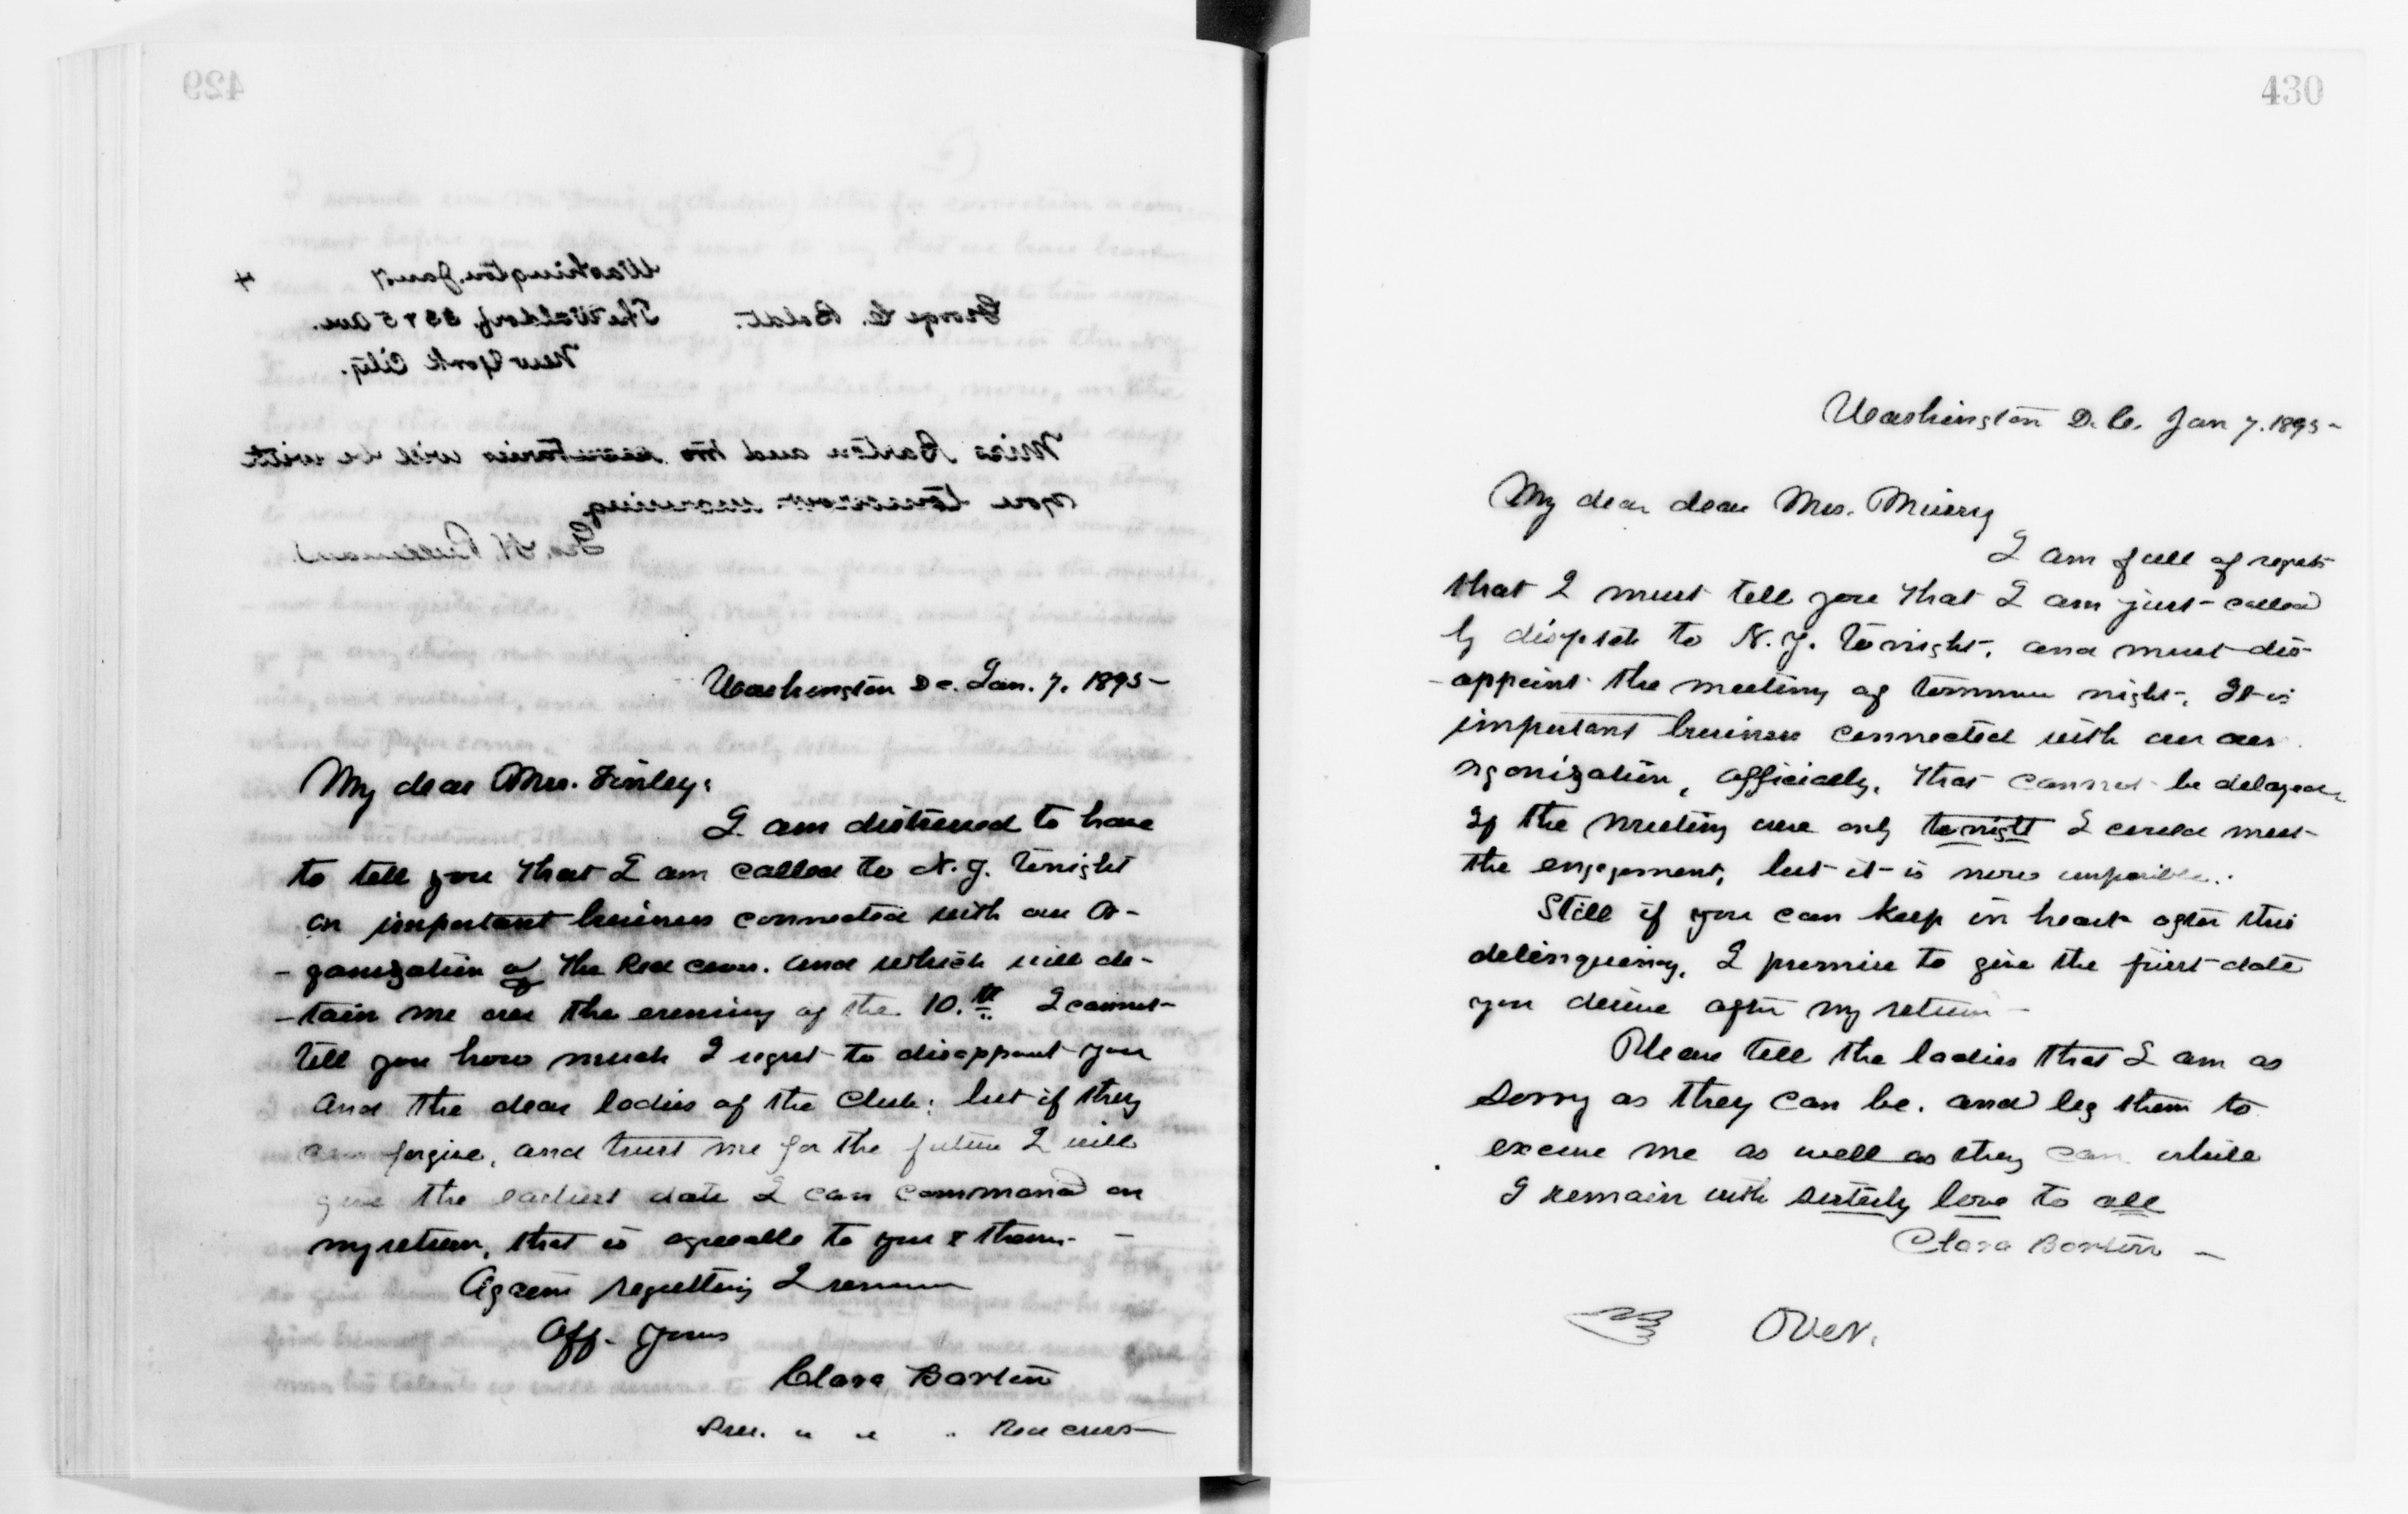 429
Washington. Jan 7 4
George C. Boldt. The Waldorf. 33 & 5 Ave.
New York City.
Miss Barton and two secretaries will be with
you tomorrow morning
Geo. H. Pullman
Washington D.C. Jan. 7. 1895-
My dear Mrs. Finley:
I am distressed to have
to tell you that I am called to N.Y. tonight
on important business connected with our or-
-ganization of the Red Cross. and which will de-
-tain me over the evening of the 10.th I cannot
tell you how much I regret to disappoint you
and the dear ladies of the Club: but if they
can forgive, and trust me for the future I will
give the earliest date I can command on
my return, that is agreeable to you & them. -
Again regretting I remain
Aff. Yours
Clara Barton
Pres. " " " Red Cross
430
Washington D.C. Jan 7. 1895-
My dear dear Mrs.
I am full of regrets
that I must tell you that I am just called
by dispatch to N.Y. tonight. and must dis-
-appoint the meeting of tomorrow night. It is
important business connected with our
organization, officially, that cannot be delayed.
If the meeting were only tonight I could meet
the engagement, but it is now impossible.
Still if you can keep in heart after this
delinquency, I promise to give the first date
you desire after my return -
Please tell the ladies that I am as
sorry as they can be. and beg them to
excuse me as well as they can while
I remain with sisterly love to all
Clara Barton -
Over.